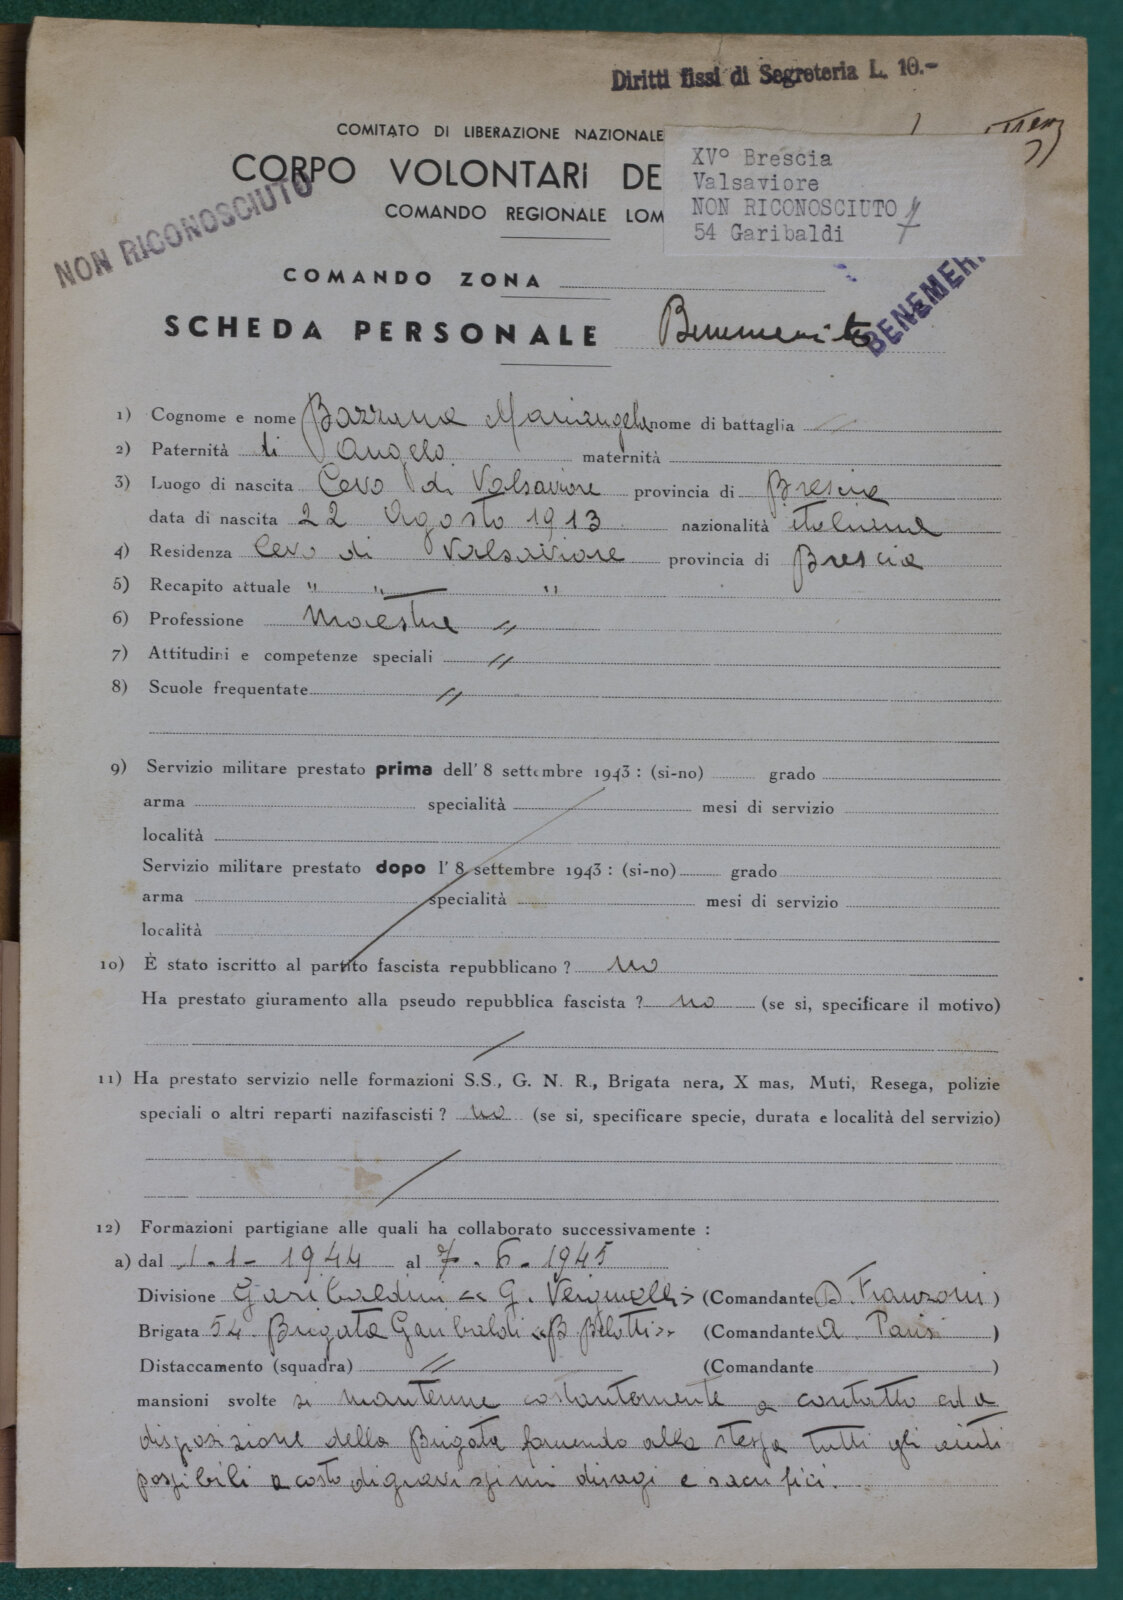 Diritti fissi di Segreteria L. 10.-
COMITATO DI LIBERAZIONE NAZIONALE
CORPO VOLONTARI DE
COMANDO REGIONALE LOM
XV° Brescia
Valsaviore
NON RICONOSCIUTO
54 Garibaldi
NON RICONOSCIUTO
COMANDO ZONA
BENEMER
SCHEDA PERSONALE Benemerito
1) Cognome e nome Bazzana Mariangela nome di battaglia //
2) Paternità di Angelo maternità
3) Luogo di nascita Cevo di Valsaviore provincia di Brescia
data di nascita 22 Agosto 1913 nazionalità italiana
4) Residenza Cevo di Valsaviore provincia di Brescia
5) Recapito attuale " " "
6) Professione Maestra //
7) Attitudini e competenze speciali //
8) Scuole frequentate //
9) Servizio militare prestato prima dell' 8 settembre 1943 : (si-no) grado
arma specialità mesi di servizio
località
Servizio militare prestato dopo l' 8 settembre 1943 : (si-no) grado
arma specialità mesi di servizio
località
10) È stato iscritto al partito fascista repubblicano ? no
Ha prestato giuramento alla pseudo repubblica fascista ? no (se si, specificare il motivo)
11) Ha prestato servizio nelle formazioni S.S., G. N. R., Brigata nera, X mas, Muti, Resega, polizie
speciali o altri reparti nazifascisti ? no (se si, specificare specie, durata e località del servizio)
12) Formazioni partigiane alle quali ha collaborato successivamente :
a) dal 1-1-1944 al 7.6.1945
Divisione Garibaldini << G. Verginella >> (Comandante D. Franzoni )
Brigata 54 Brigata Garibaldi «B Belotti» (Comandante A. Parisi )
Distaccamento (squadra) // (Comandante )
mansioni svolte si mantenne costantemente a contatto ed a
disposizione della Brigata fornendo alla stessa tutti gli aiuti
possibili a costo di gravissimi disagi e sacrifici.